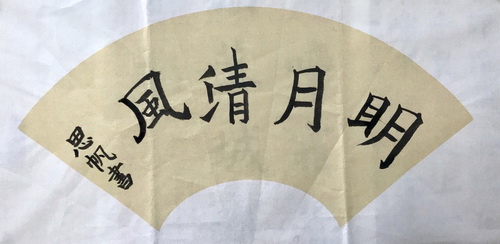 明月清風
思帆書